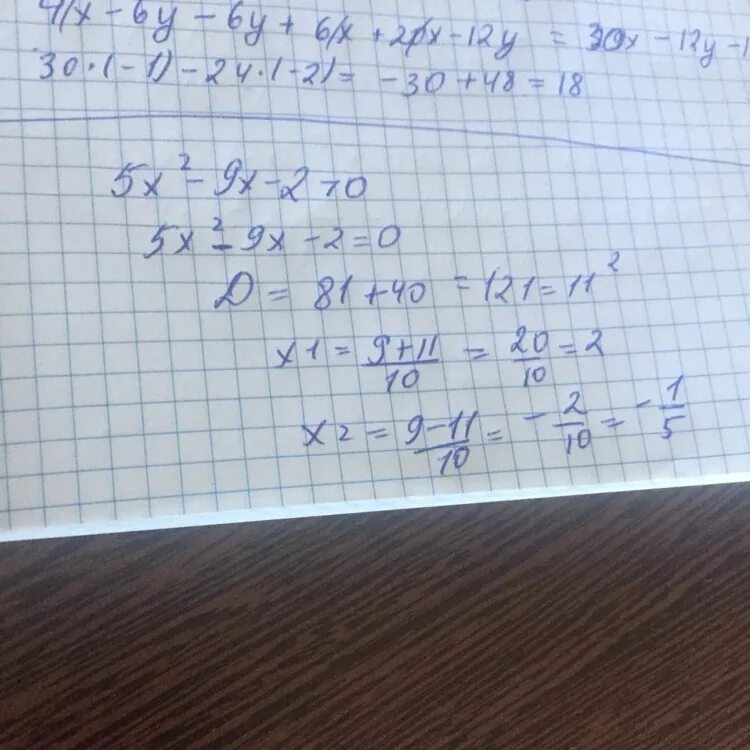 x - 6y - 6y + 6x + x - 12y = 30x - 12y - 1
30 · (-1) - 24 · (-2) = -30 + 48 = 18
5x² - 9x - 2 > 0
5x² - 9x - 2 = 0
D = 81 + 40 = 121 = 11²
x1 = 9+11/10 = 20/10 = 2
x2 = 9-11/10 = -2/10 = -1/5